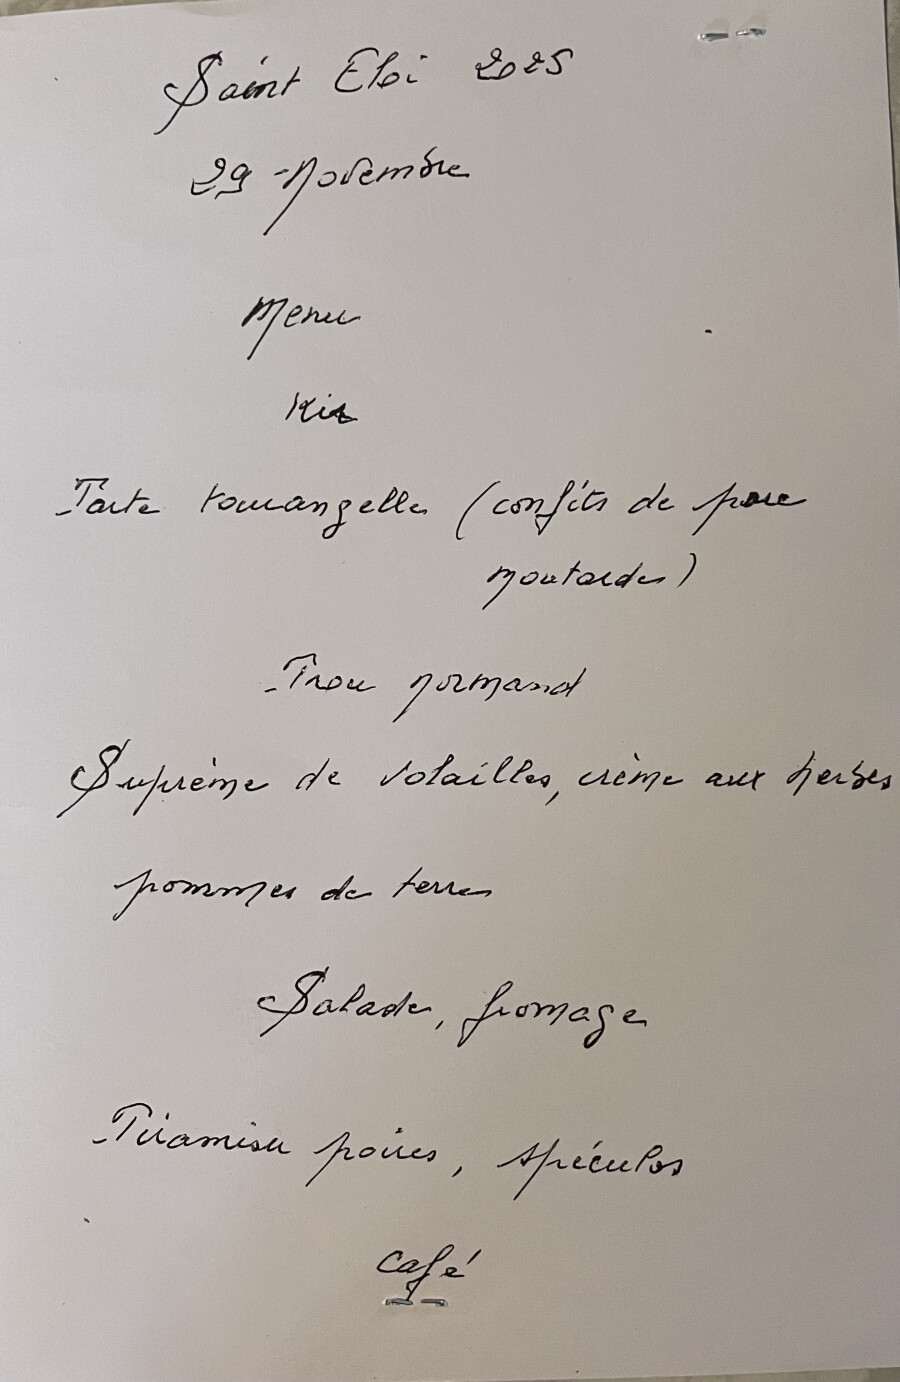 Saint Eloi 2025
29 novembre
Menu
Kir
Tarte tourangelle (confits de porc
moutarde)
Trou normand
Suprème de volailles, crème aux herbes
pommes de terres
Salade, fromage
Tiramisu poires, spéculos
café